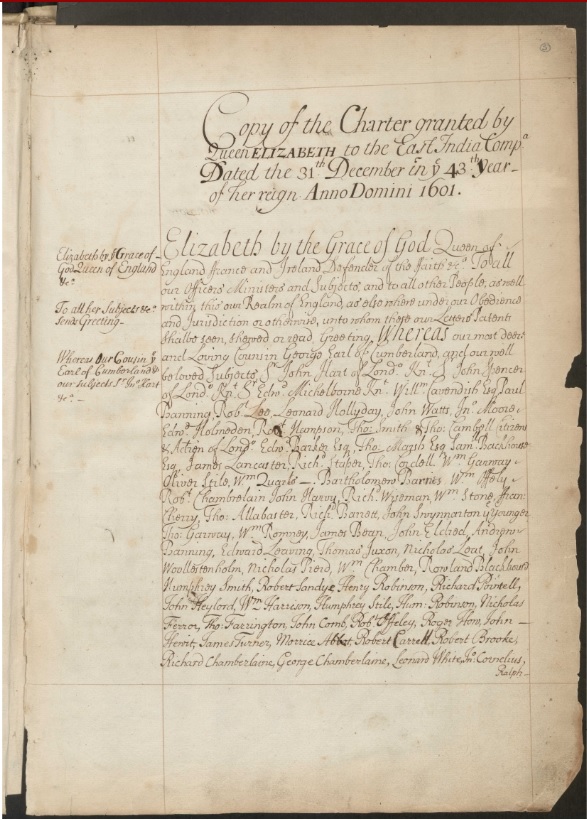 Copy of the Charter granted by
Queen ELIZABETH to the East India Compª
Dated the 31th December in ye 43th Year
of her reign Anno Domini 1601.
Elizabeth by ye Grace of
God Queen of England
&cª
To all her Subjects &cª
sends Greeting
Whereas our Cousin ye
Earl of Cumberland &
our subjects Sr Jnº Hart
&cª
Elizabeth by the Grace of God Queen of
England france and Ireland Defender of the faith &cª To all
our Officers Ministers and Subjects, and to all other People, as well
within this our Realm of England, as elsewhere under our Obedience
and Jurisdiction or otherwise, unto whom these our Letters Patent
shall be seen, shewed or read, Greeting. Whereas our most deer
and Loving Cousin George Earl of Cumberland, and our well
beloved Subjects, Sr John Hart of Londº Knt Sr John Spencer
of Londº Knt Sr Edwd Michelborne Knt Willm Cavendish Esq Paul
Banning, Robt Lee, Leonard Hollyday, John Watts, Jnº Moore,
Edwd Holmeden, Robt Hampson, Thoº Smith & Thoº Cambell Citizens
& of Londº Edwd Barker Esq, Thoº Marsh Esq Saml Backhouse
Esq, James Lancaster, Richd Staper, Thoº Cordell, Wm Garway
Oliver Stile, Wm Quarls Bartholomew Barnes Wm Offely
Robt Chamberlain John Harvy, Rich: Wiseman, Wm Stone, Fran:
Cherry, Tho: Allabaster, Richd Barrett, John Swynnarton ye younger
Thoº Garway, Wm Romney, James Bean, John Eldred, Andrew
Banning, Edward Leaving, Thomas Juxon, Nicholas Leat, John
Woollestenholm, Nicholas Pierd, Wm Chamber, Rowland Blackhouse
Humphrey Smith, Robert Sandye Henry Robinson, Richard Pointell,
John Heylord, Wm Harrison, Humphrey Stile, Hum: Robinson, Nicholas
Ferror, Tho: Farrington, John Comb, Robt Offeley, Roger How, John
Hewit, James Turner, Morrice Abbot Robert Carrell, Robert Brooke,
Richard Chamberlaine, George Chamberlaine, Leonard White, Jnº Cornelius,
Ralph